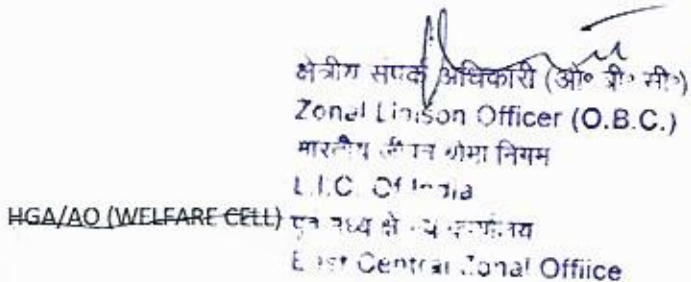 क्षेत्रीय संपर्क अधिकारी (ओ॰ बी॰ सी॰)
Zonal Liaison Officer (O.B.C.)
भारतीय जीवन बीमा निगम
L.I.C. Of India
HGA/AO (WELFARE CELL)
पूर्व मध्य क्षेत्रीय कार्यालय
East Central Zonal Offiice